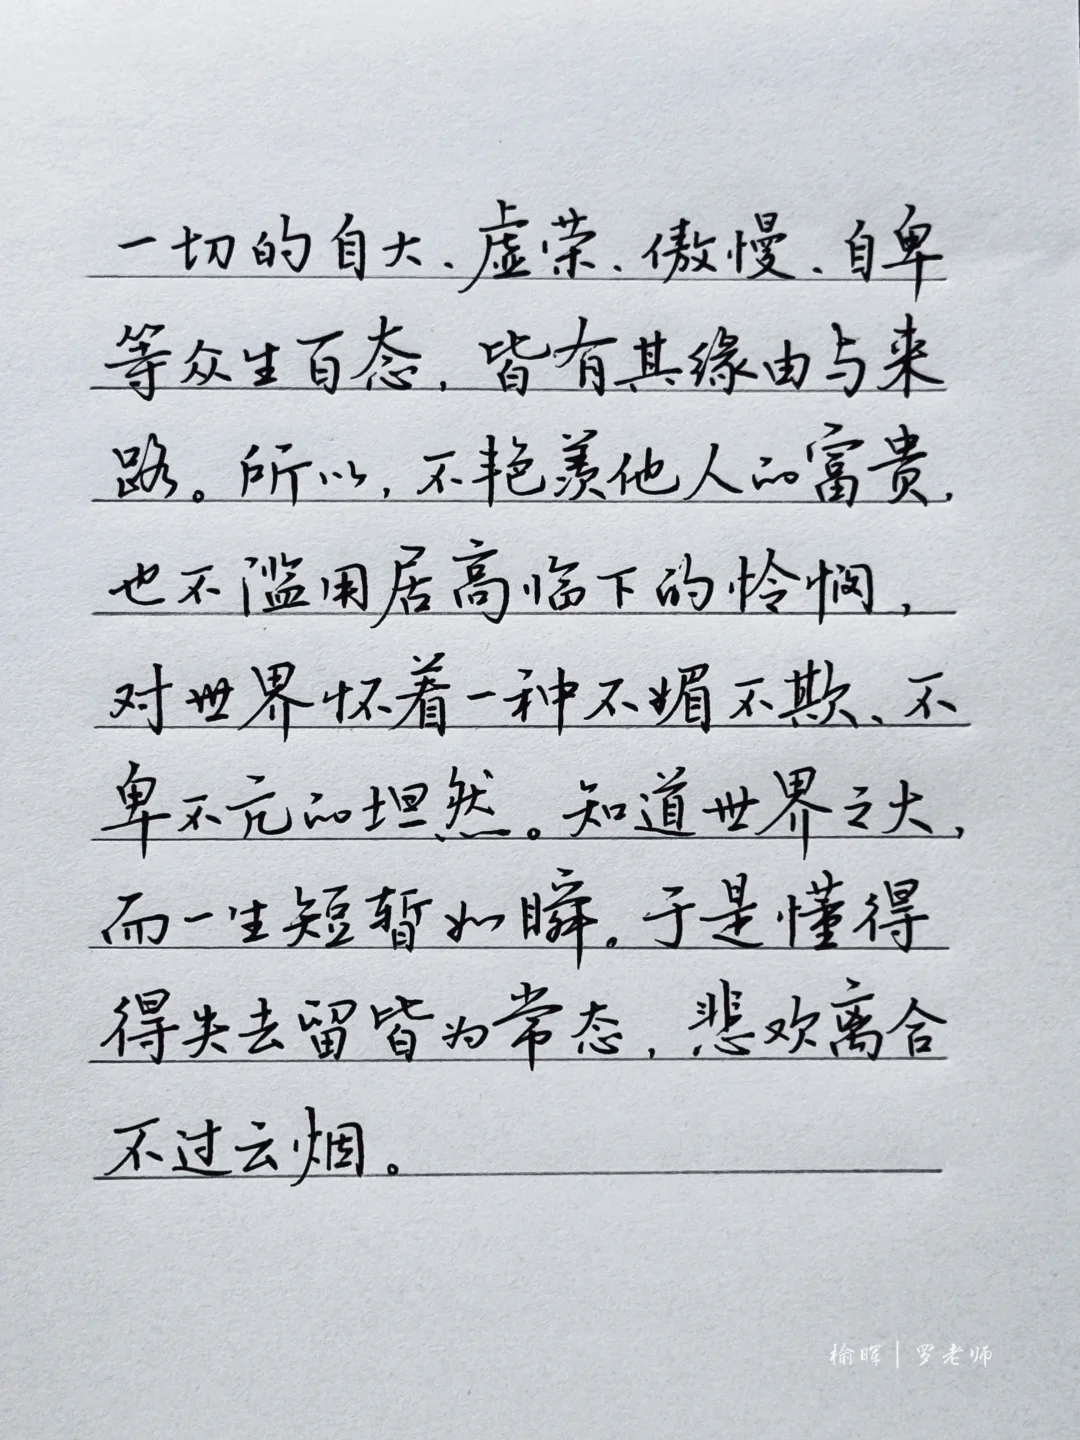 一切的自大、虚荣、傲慢、自卑
等众生百态，皆有其缘由与来
路。所以，不艳羡他人的富贵，
也不滥用居高临下的怜悯，
对世界怀着一种不媚不欺、不
卑不亢的坦然。知道世界之大，
而一生短暂如瞬。于是懂得
得失去留皆为常态，悲欢离合
不过云烟。
榆晖|罗老师